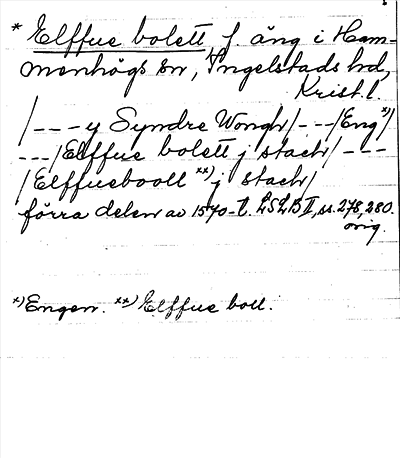 * Elffue bolett f. äng i Ham-
menhögs sn, Ingelstads hd,
Krist. l.
/---y Syndre Wongh/---/Eng *)/
---/Elffue bolett j stach/---
/Elffuebooll **) j stach/
förra delen av 1570-t. LSLB II, ss. 278, 280.
orig.
*) Engen. **) Elffue boll.